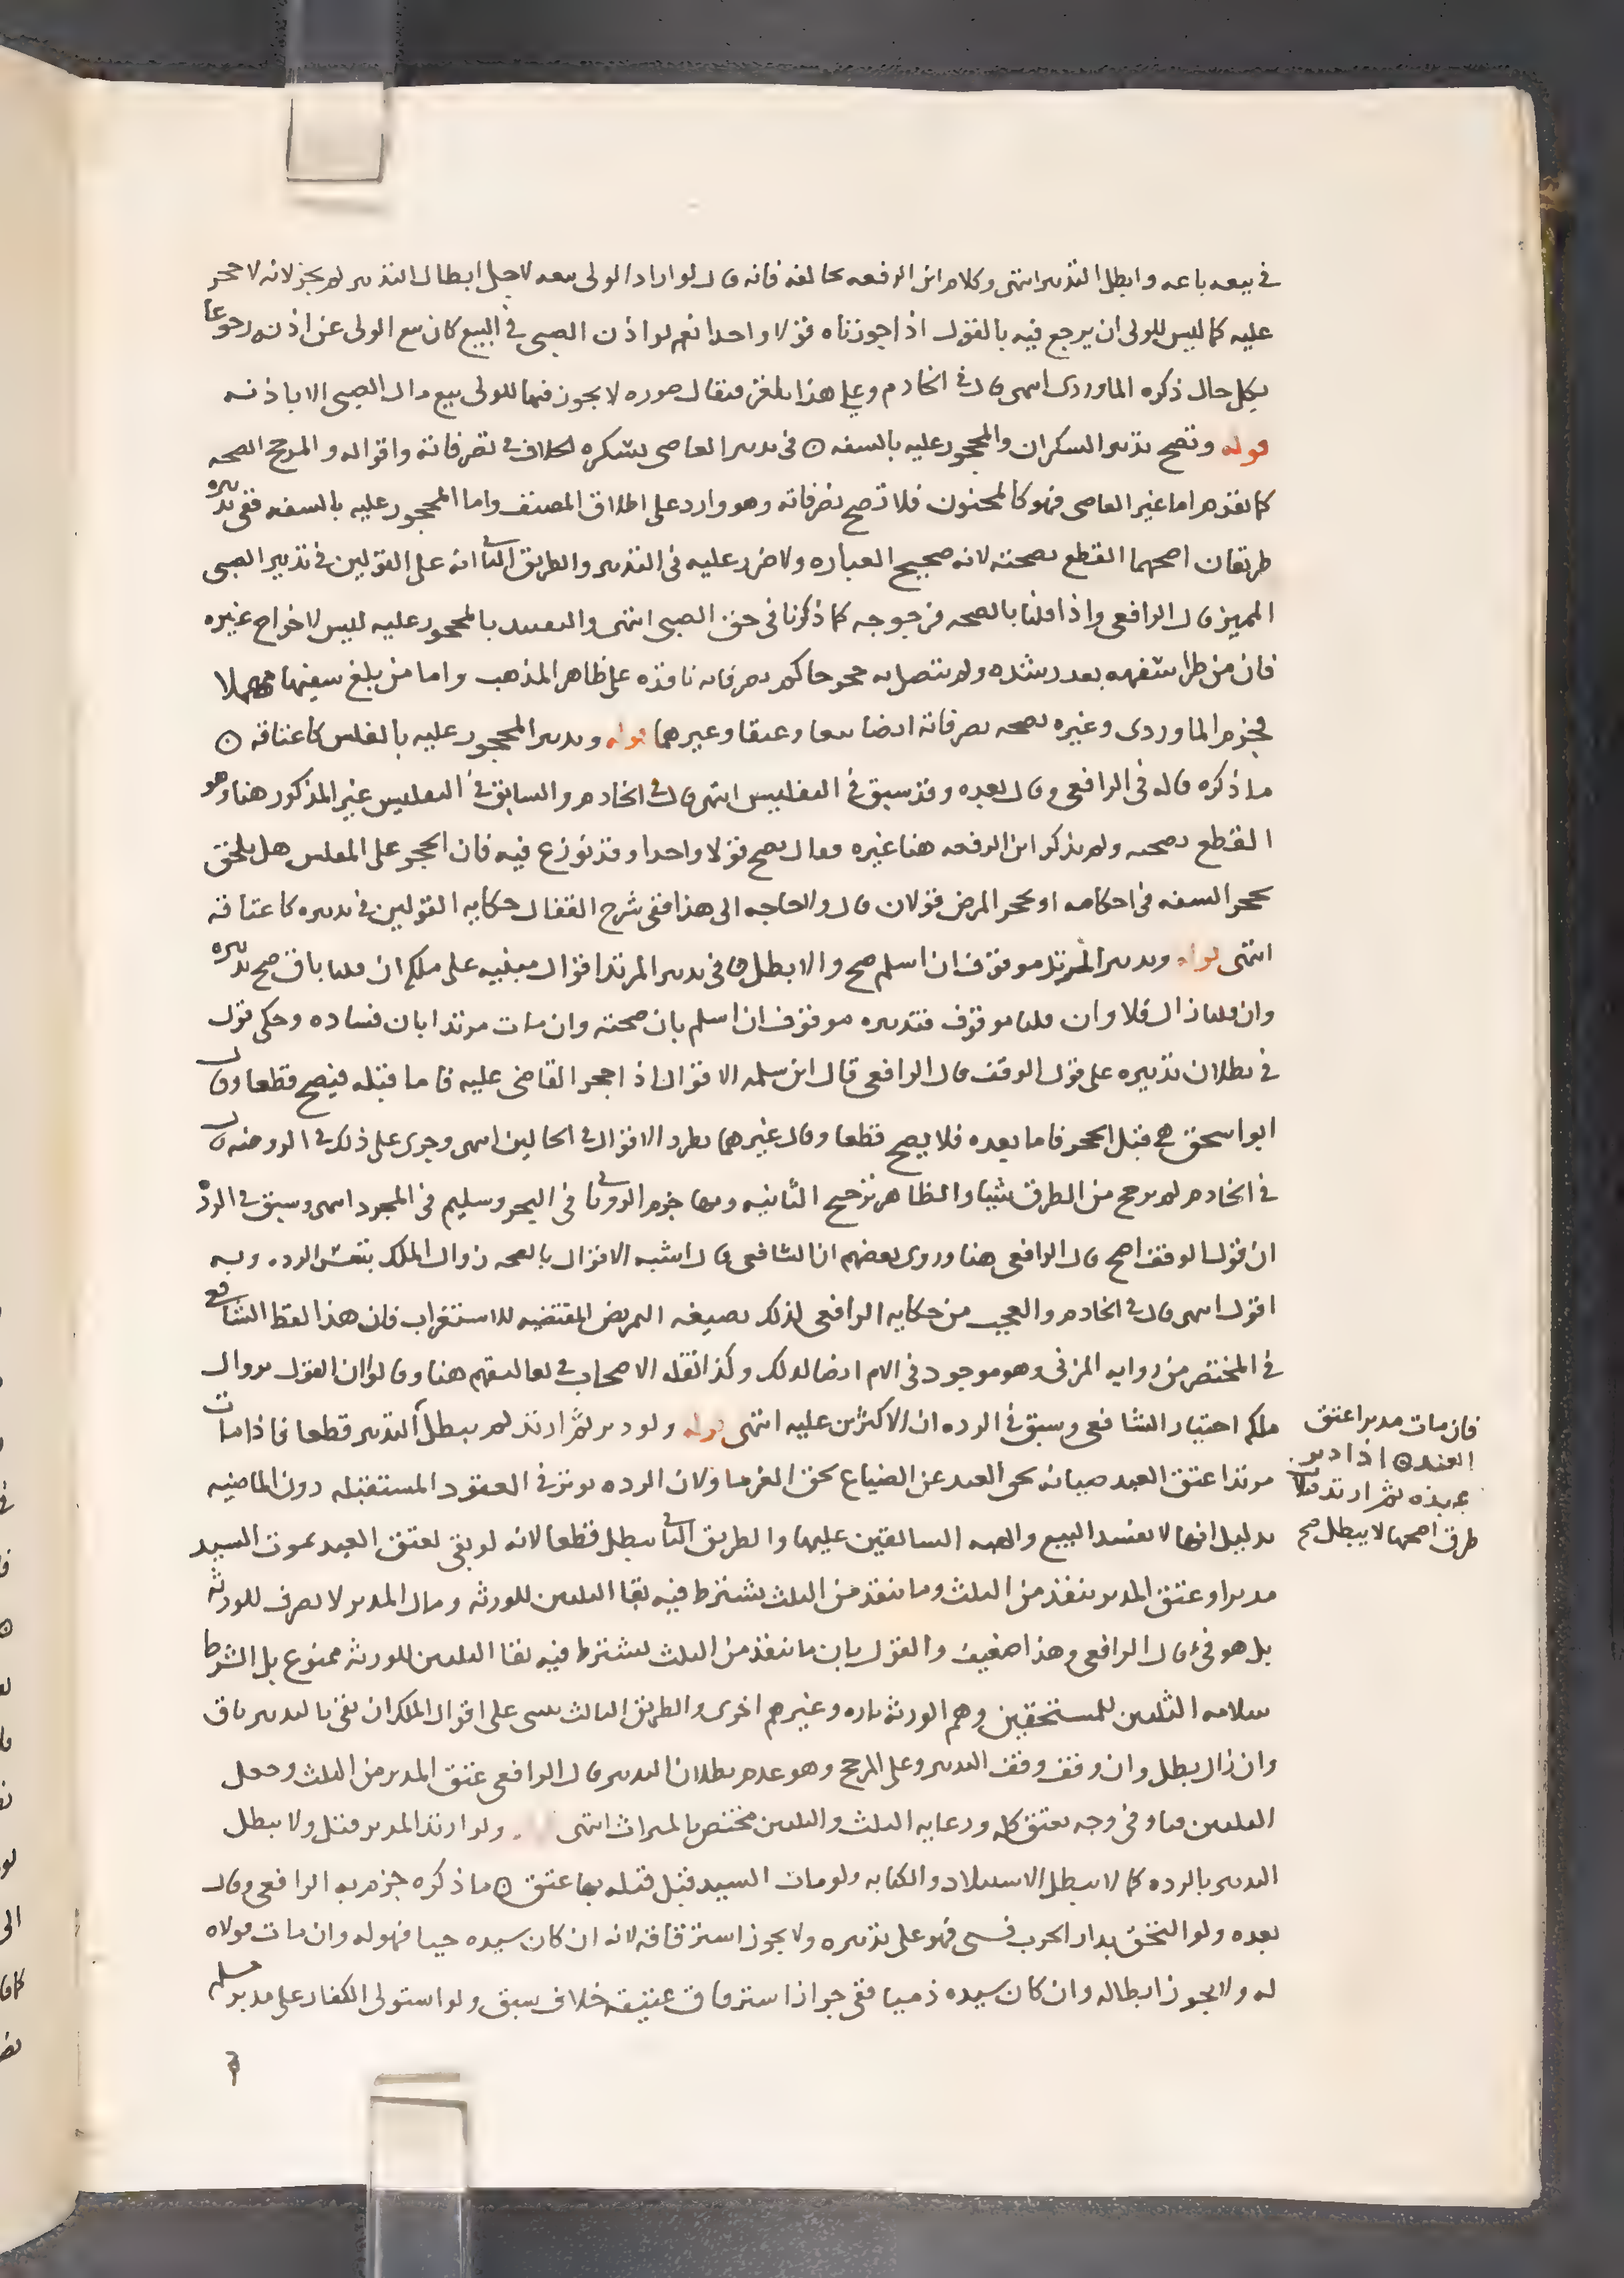 في بيعه باعه وابطل التدبير انتهى وكلام ابن الرفعه يخالفه فانه قال لو اراد الولى بيعه لاجل ابطال التدبير لم يجز لانه لا حجر
عليه كما ليس للولى ان يرجع فيه بالقول اذا جوزناه قولا واحدا نعم لو اذن الصبى في البيع كان بيع الولى عن اذنه رجوعا
بكل حال ذكره الماوردى انتهى قال في الخادم وعلى هذا يلغز فيقال صوره لا يجوز فيها للولى بيع مال الصبى الا باذنه
قوله وتصح تدبير السكران والمحجور عليه بالسفه ⊙ في تدبير العاصى بسكره الخلاف في تصرفاته واقواله والمرجح الصحه
كما تقدم اما غير العاصى فهو كالمجنون فلا تصح تصرفاته وهو وارد على اطلاق المصنف واما المحجور عليه بالسفه ففى تدبيره
طريقان اصحهما القطع بصحته لانه صحيح العباره ولا ضرر عليه في التدبير والطريق الثانى انه على القولين في تدبير الصبى
المميز قال الرافعى واذا قلنا بالصحه فرجوعه كما ذكرنا في حق الصبى انتهى والتقييد بالمحجور عليه ليس لاخراج غيره
فان من طرا سفهه بعد رشده ولم يتصل به حجر حاكم تصرفاته نافذه على ظاهر المذهب واما من بلغ سفيها مهملا
فجزم الماوردى وغيره بصحه تصرفاته ايضا بيعا وعتقا وغيرهما قوله وتدبير المحجور عليه بالفلس كاعتاقه ⊙
ما ذكره قاله في الرافعى وقال بعده وقد سبق في التفليس انتهى قال في الخادم والسابق في التفليس غير المذكور هنا وهو
القطع بصحته ولم يذكر ابن الرفعه هنا غيره فقال يصح قولا واحدا وقد نوزع فيه فان الحجر على المفلس هل يلحق
بحجر السفه في احكامه او بحجر المرض قولان قال والحاجه الى هذا ففى شرح القفال حكايه القولين في تدبيره كاعتاقه
انتهى قوله وتدبير المرتد موقوف ان اسلم صح والا بطل ⊙ في تدبير المرتد اقوال مبنيه على ملكه ان قلنا باق صح تدبيره
وان قلنا زال فلا وان قلنا موقوف فتدبيره موقوف ان اسلم بان صحته وان مات مرتدا بان فساده وحكى قول
في بطلان تدبيره على قول الوقف قال الرافعى قال ابن سلمه الاقوال اذا حجر القاضى عليه فاما قبله فيصح قطعا وقال
ابو اسحق هي قبل الحجر فاما بعده فلا يصح قطعا وقال غيرهما بطرد الاقوال في الحالين انتهى وجرى على ذلك في الروضه قال
في الخادم لم يرجح من الطرق شيئا والظاهر ترجيح الثانيه وبها جزم الرويانى في البحر وسليم في المجرد انتهى وسبق في الرده
ان قول الوقف اصح قال الرافعى هنا وروى بعضهم ان الشافعى قال اشبه الاقوال بالصحه زوال الملك بنفس الرده وبه
اقول انتهى قال في الخادم والعجب من حكايه الرافعى لذلك بصيغه التمريض المقتضيه للاستغراب فان هذا لفظ الشافعى
في المختصر من روايه المزنى وهو موجود في الام ايضا لذلك وكذا نقله الاصحاب في تعاليقهم هنا وقالوا ان القول بزوال
ملكه اختيار الشافعى وسبق في الرده ان الاكثرين عليه انتهى قوله ولو دبر ثم ارتد لم يبطل التدبير قطعا فاذا مات
مرتدا عتق العبد صيانه لحق العبد عن الضياع كحق الغرما ولان الرده توثر في العقود المستقبله دون الماضيه
بدليل انها لا تفسد البيع والهبه السابقين عليها والطريق الثانى يبطل قطعا لانه لو بقى لعتق العبد بموت السيد
مدبرا وعتق المدبر ينفذ من الثلث وما ينفذ من الثلث يشترط فيه بقا الثلثين للورثه ومال المدبر لا يصرف للورثه
بل هو فيء قال الرافعى وهذا ضعيف والقول بان ما ينفذ من الثلث يشترط فيه بقا الثلثين للورثه ممنوع بل الشرط
سلامه الثلثين للمستحقين وهم الورثه تاره وغيرهم اخرى والطريق الثالث يبنى على اقوال الملك ان بقى فالتدبير باق
وان زال بطل وان وقف وقف التدبير وعلى المرجح وهو عدم بطلان التدبير قال الرافعى عتق المدبر من الثلث وجعل
الثلثين فيا وفي وجه يعتق كله ورعايه الثلث والثلثين مختص بالميراث انتهى ولو ارتد المدبر قتل ولا يبطل
التدبير بالرده كما لا يبطل الاستيلاد والكتابه ولو مات السيد قبل قتله بها عتق ⊙ ما ذكره جزم به الرافعى وقال
بعده ولو التحق بدار الحرب فسبى فهو على تدبيره ولا يجوز استرقاقه لانه ان كان سيده حيا فهو له وان مات فولاه
له ولا يجوز ابطاله وان كان سيده ذميا ففى جواز استرقاق عتيقه خلاف سبق ولو استولى الكفار على مدبر مسلم
فان مات مدبرا عتق
العبد ⊙ اذا دبر
عبده ثم ارتد فثلاث
طرق اصحها لا يبطل صح